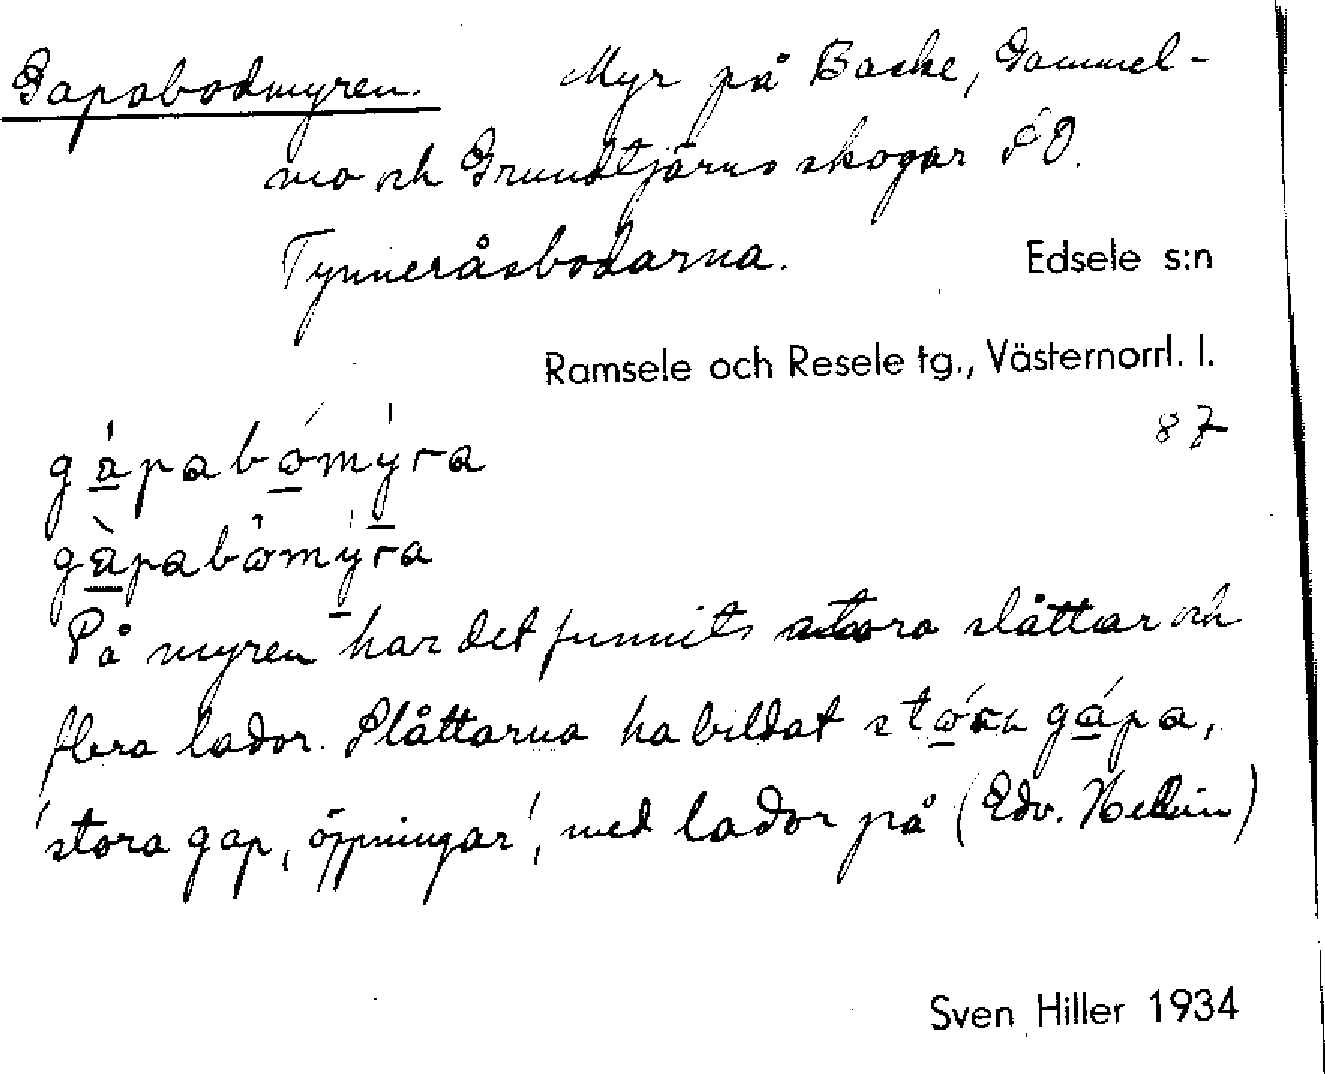 Gapabodmyren. Myr på Backe, Gammel-
mo och Grundtjärns skogar SO.
Tynneråsbodarna. Edsele s:n
Ramsele och Resele tg., Västernorrl. l.
87
gápabómýra
gàpabômýra
På myren har det funnits stora slåttar och
flera lador. Slåttarna ha bildat gápa,
'stora gap, öppningar', med lador på (Edv. Hellin)
Sven Hiller 1934